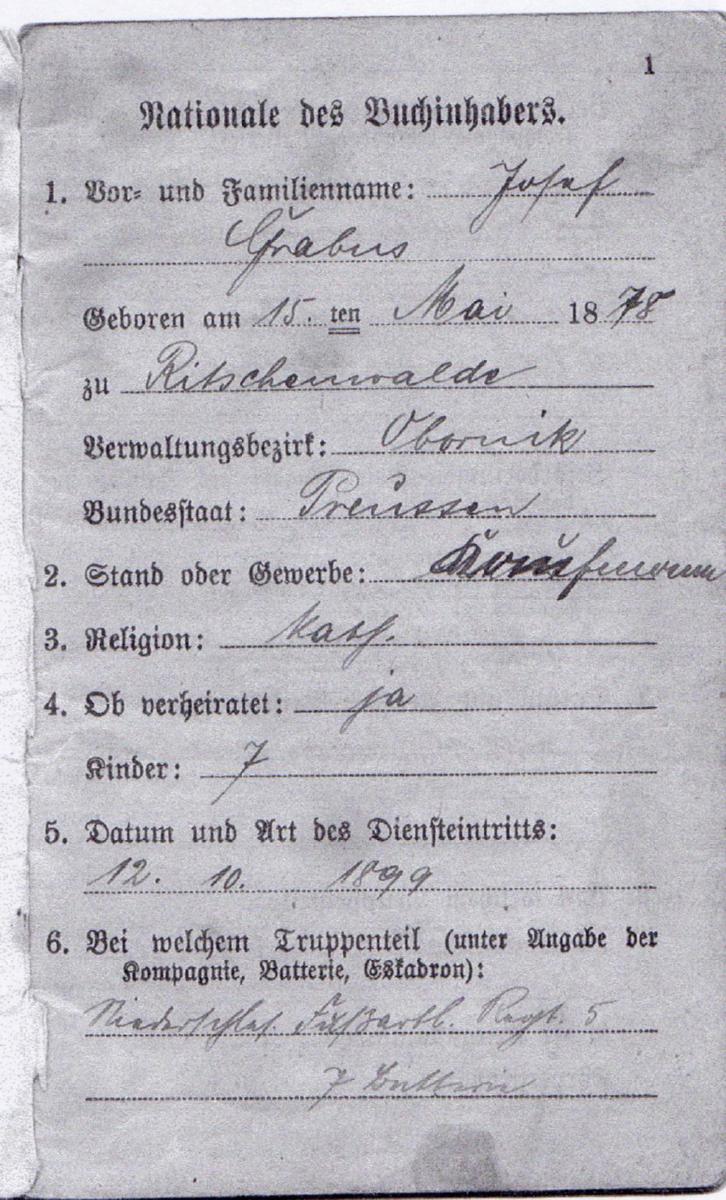 1
Nationale des Buchinhabers.
1. Vor- und Familienname: Josef
Grabus
Geboren am 15. ten Mai 1878
zu Ritschenwalde
Verwaltungsbezirk: Obornik
Bundesstaat: Preussen
2. Stand oder Gewerbe: Kaufmann
3. Religion: kath.
4. Ob verheiratet: ja
Kinder: 7
5. Datum und Art des Diensteintritts:
12. 10. 1899
6. Bei welchem Truppenteil (unter Angabe der
Kompagnie, Batterie, Eskadron):
Niederschles. Fußartl. Regt. 5
7 Batterie